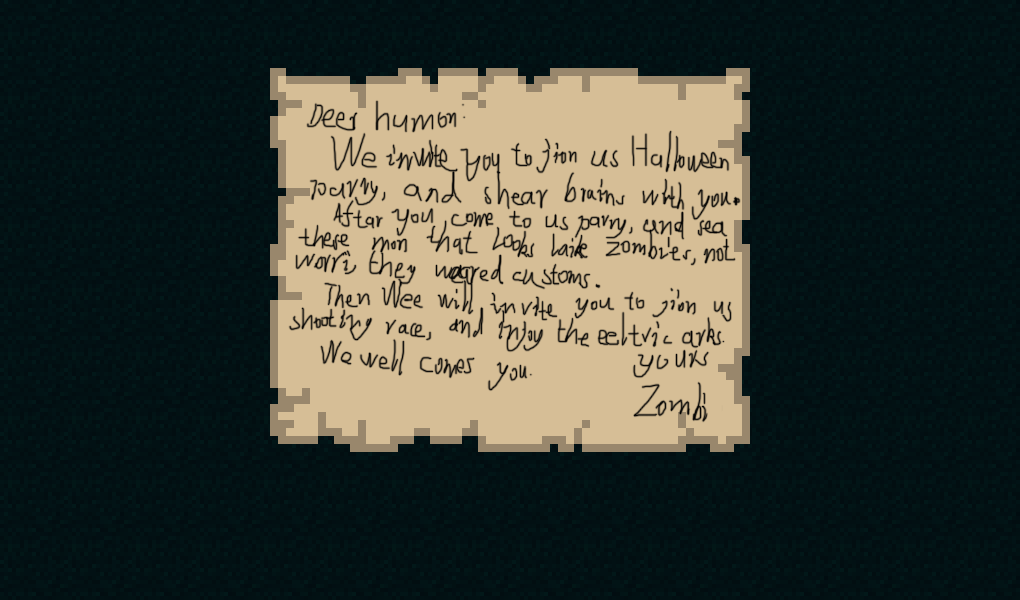 Deer humon:
We invite you to jion us Halloween
parry, and shear brains with you.
Aftar you come to us parry, and sea
these mon that Looks laik Zombies, not
worri, they wagred customs.
Then Wee will invite you to jion us
shooting race, and injoy the eeltric arks.
We well comes you.
yours
Zombi